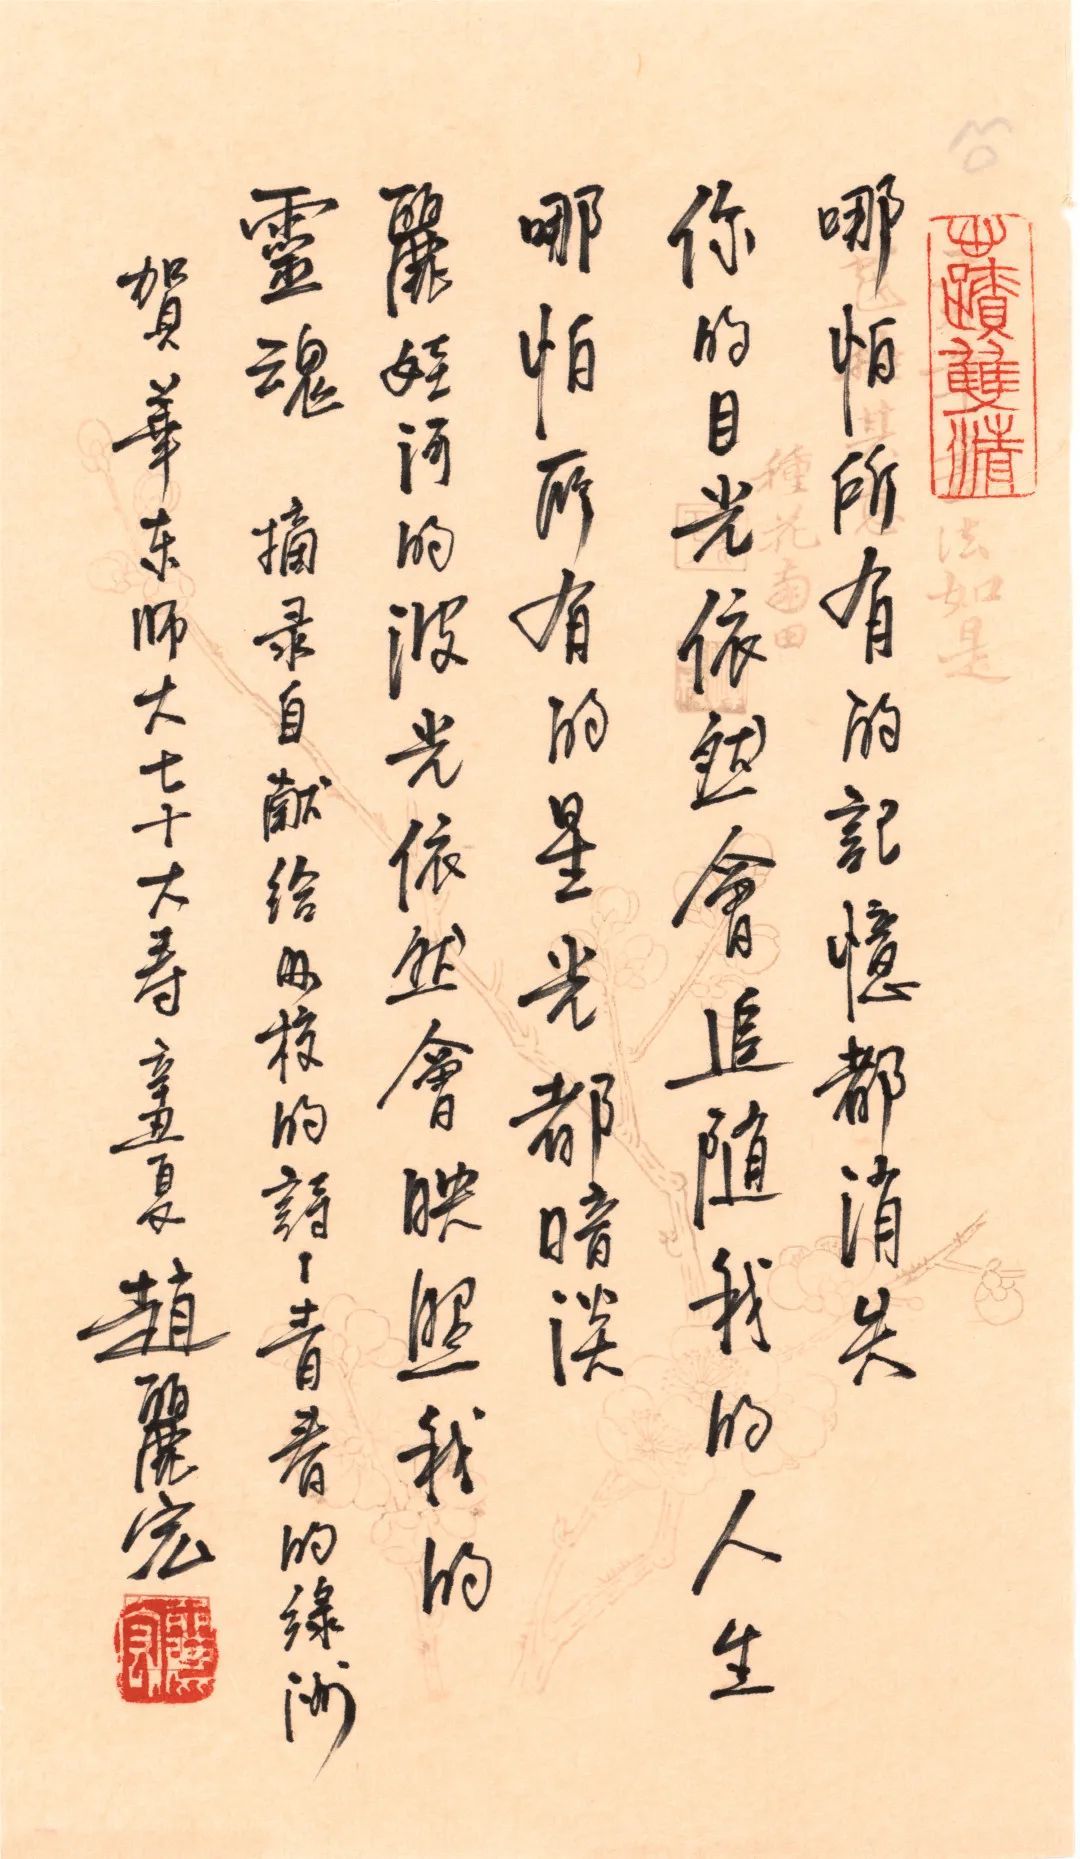 哪怕所有的記憶都消失
你的目光依然會追随我的人生
哪怕所有的星光都暗淡
麗娃河的波光依然會映照我的
靈魂 摘录自献给母校的詩「青春的綠洲
賀華东师大七十大寿 辛丑夏 趙麗宏
法如是
種花南田